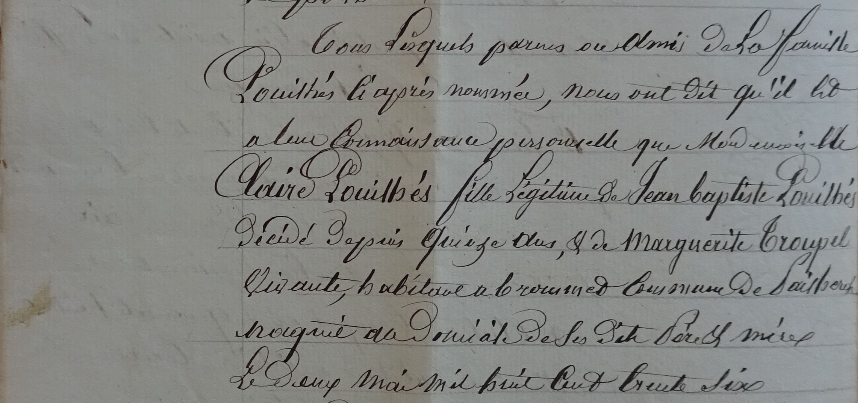 Tous lesquels parens ou Amis De La famille
Pouilhés Ci après nommée, nous ont dit qu'il est
a leur Connaissance personnelle que Mademoiselle
Claire Pouilhés fille Légitime de Jean baptiste Pouilhés
Décédé Depuis quinze ans, & de Marguerite Troupel
Vivante, habitant a brommes Commune De
naquit au Domicile De Ses Dits Père & mère
Le Deux Mai Mil huit Cent trente Six